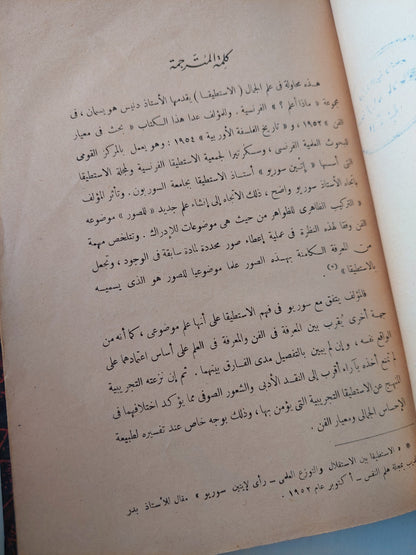 كلمة المترجمة
هذه محاولة فى علم الجمال ( الاستطيقا ) يقدمها الأستاذ دنيس هويسمان ، فى
مجموعة « ماذا أعلم ؟ » الفرنسية . وللمؤلف عدا هذا الكتاب « بحث فى معيار
الفن » ١٩٥٢ ، و « تاريخ الفلسفة الأوربية » ١٩٥٤ : وهو يعمل بالمركز القومى
للبحوث العلمية الفرنسى ، وسكرتيرا لجمعية الاستطيقا الفرنسية ولمجلة الاستطيقا
التى أسسها « إتيين سوريو » أستاذ الاستطيقا بجامعة السوربون . وتأثر المؤلف
باتجاه الأستاذ سوريو واضح ، ذلك الاتجاه إلى إنشاء علم جديد « للصور » موضوعه
« التركيب الظاهرى للظواهر من حيث هى موضوعات للإدراك . وتتلخص مهمة
الفن وفقا لهذه النظرة فى عملية إعطاء صور محددة لمادة سابقة فى الوجود ، وتجعل
من المعرفة الكامنة بهذه الصور علما موضوعيا للصور هو الذى يسميه
بالاستطيقا » (*) .
فالمؤلف يتفق مع سوريو فى فهم الاستطيقا على أنها علم موضوعى ، كما أنه من
جهة أخرى يُقرب بين المعرفة فى الفن والمعرفة فى العلم على أساس اعتمادهما على
الواقع نفسه ، وإن لم يبين بالتفصيل مدى الفارق بينهما . ثم إن نزعته التجريبية
لم تمنع أخذه بآراء أقرب إلى النقد الأدبى والشعور الصوفى مما يؤكد اختلافهما فى
النهج عن الاستطيقا التجريبية التى يؤمن بها ، وذلك بوجه خاص عند تفسيره لطبيعة
الإحساس الجمالى ومعيار الفن .
* « الاستطيقا بين الاستقلال والتوزع العلمى — رأى لإيتين سوريو » مقال للأستاذ بدر
بمجلة علم النفس — أكتوبر عام ١٩٥٢ .